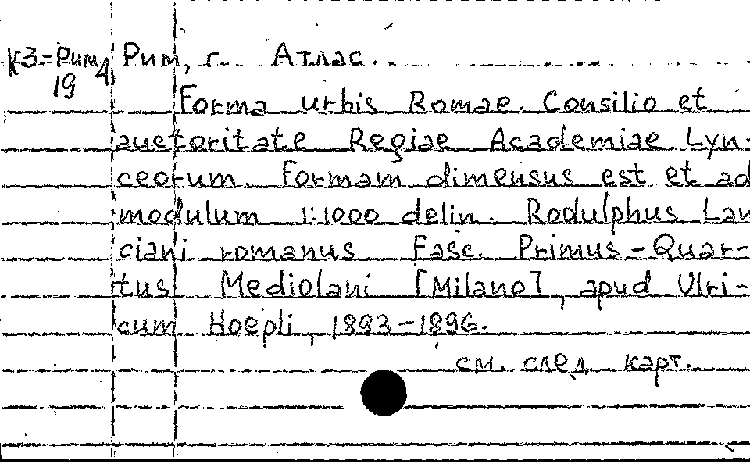 К3-Рим, Рим, г. Атлас.
19 4
Forma urbis Romae. Consilio et
auctoritate Regiae Academiae Lyn-
ceorum Formam dimensus est et ad
modulum 1:1000 delin. Rodulphus Lan
ciani romanus Fasc. Primus-Quar-
tus Mediolani [Milano], apud Ulri-
cum Hoepli, 1893-1896.
см. след. карт.